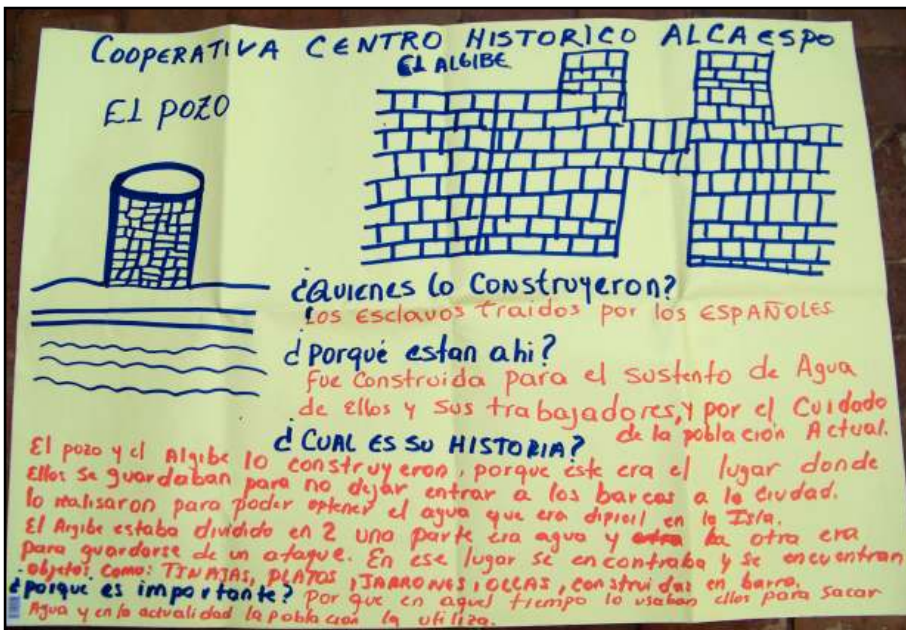 COOPERATIVA CENTRO HISTORICO ALCAESPO
EL ALGIBE
El POZO
¿Quienes lo Construyeron?
Los Esclavos traidos por los ESPAÑOLES
¿Porqué estan ahi?
Fue Construida para el sustento de Agua
de Ellos y Sus trabajadores, y por el Cuidado
de la población Actual.
¿CUAL ES SU HISTORIA?
El pozo y el Algibe lo construyeron, porque este era el lugar donde
Ellos se guardaban para no dejar entrar a los barcos a la ciudad.
lo realisaron para poder optener el agua que era dificil en la Isla.
El Argibe estaba dividido en 2 una parte era agua y la otra era
para guardarse de un ataque. En ese lugar se encontraba y se encuentran
objetos como: TINAJAS, PLATOS, JARRONES, OLLAS, construidas en barro.
¿porque es importante? Por que en aquel tiempo lo usaban ellos para sacar
Agua y en la actualidad la población la utiliza.